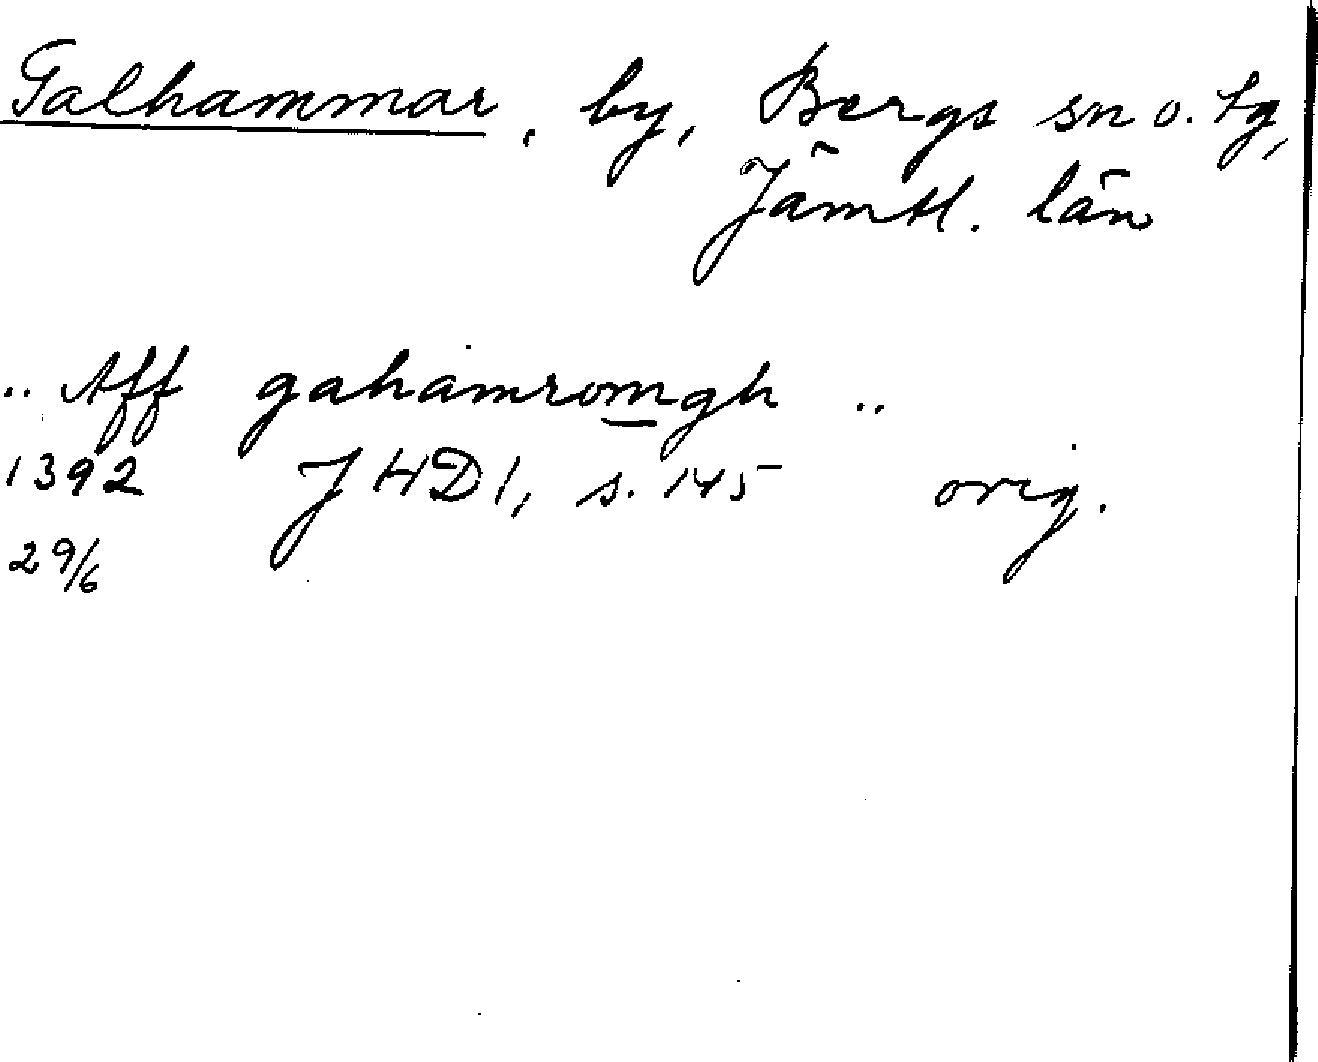 Galhammar, by, Bergs sn o. tg,
Jämtl. län
.. Aff gahamromgh ..
1392 JHD1, s. 145 orig.
29/6